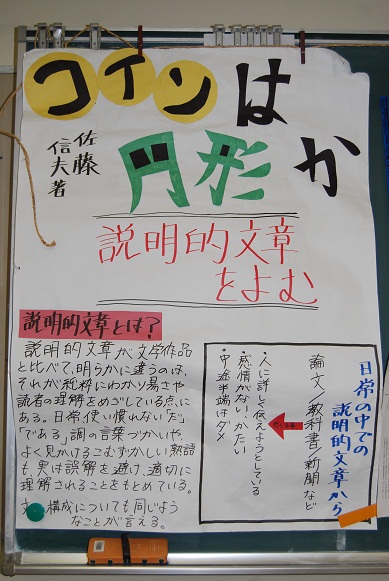 コインは
円形か
佐藤
信夫著
説明的文章
をよむ
説明的文章とは？
説明的文章が文学作品
と比べて、明らかに違うのは、
それが純粋にわかり易さや
読者の理解をめざしている点に
ある。日常使い慣れない「だ」
「である」調の言葉づかいや、
よく見かけるこむずかしい熟語
も、実は誤解を避け、適切に
理解されることをもとめている。
文 構成についても同じよう
なことが言える。
日常の中での
説明的文章から
論文／教科書／新聞など
・人に詳しく伝えようとしている
・感情がない、かたい
・中途半端はダメ